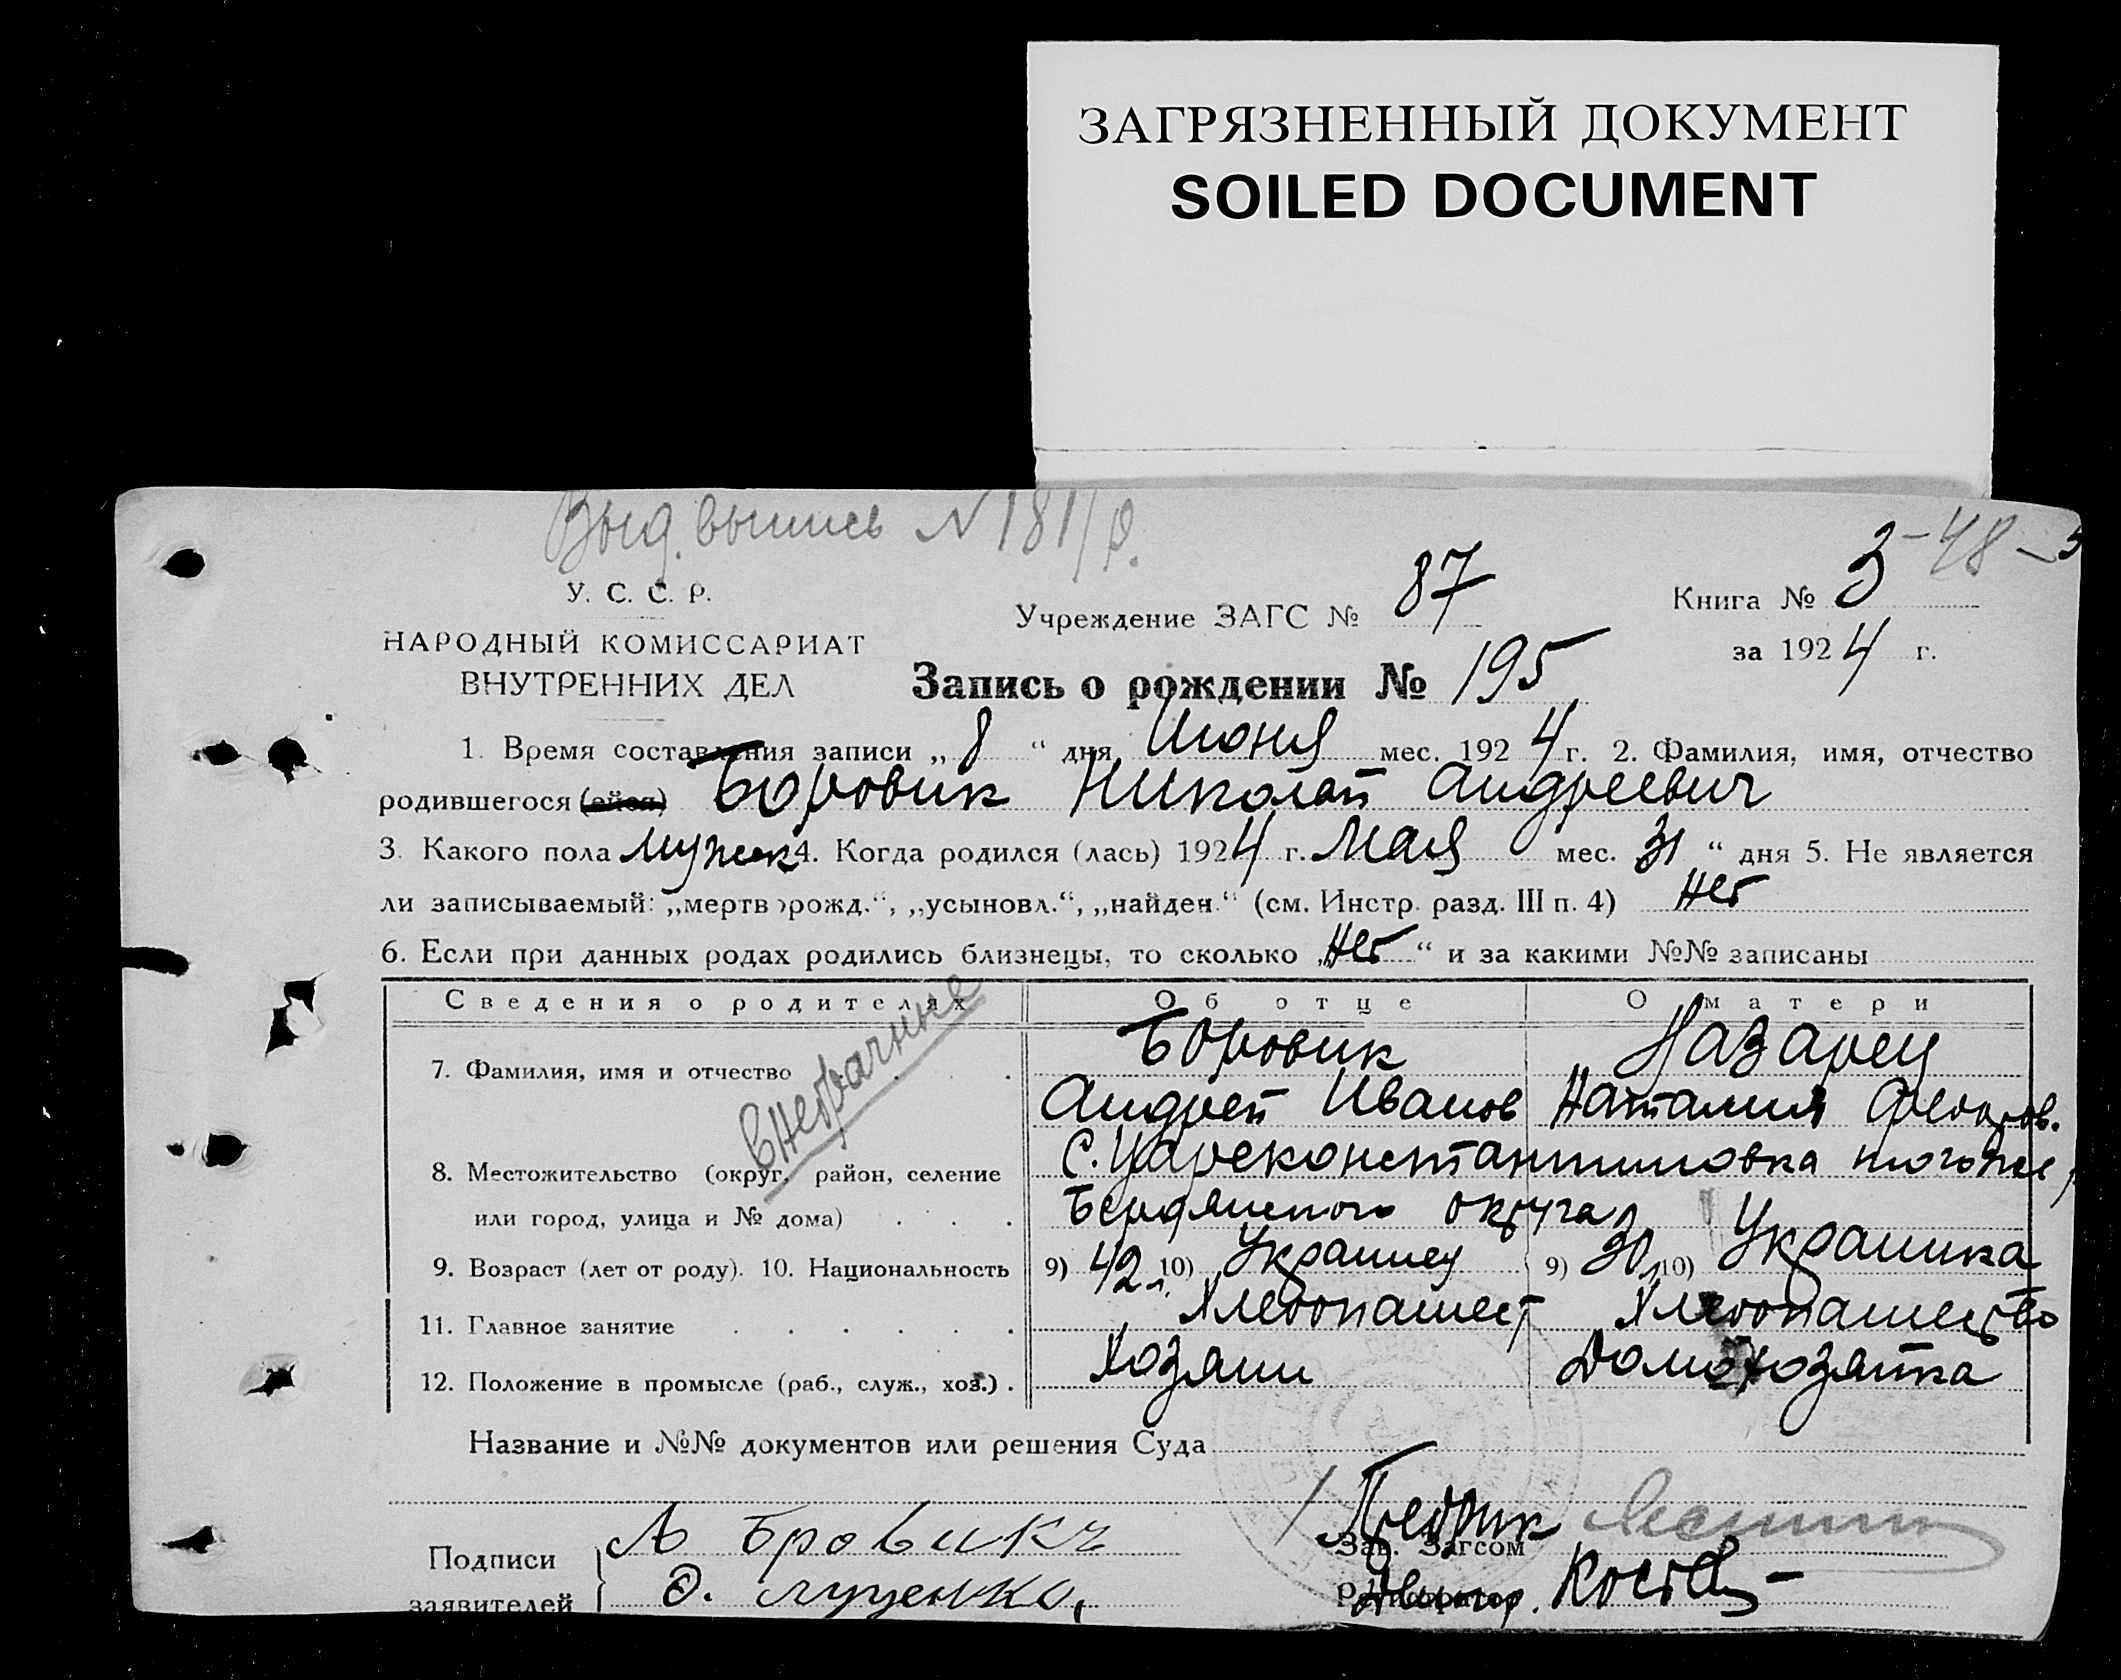 ЗАГРЯЗНЕННЫЙ ДОКУМЕНТ
SOILED DOCUMENT
Выд. выпись N 181/р.
3 - 48 -
У. С. С. Р.
НАРОДНЫЙ КОМИССАРИАТ
ВНУТРЕННИХ ДЕЛ
Учреждение ЗАГС № 87
Книга № 3
за 1924 г.
Запись о рождении № 195
1. Время составления записи „ 8 “ дня Июня мес. 1924 г. 2. Фамилия, имя, отчество
родившегося (ейся) Боровик Николай Андреевич
3. Какого пола мужск 4. Когда родился (лась) 1924 г. Мая мес. 31 “ дня 5. Не является
ли записываемый: „мертворожд.“, „усыновл.“, „найден.“ (см. Инстр. разд. III п. 4) Нет
6. Если при данных родах родились близнецы, то сколько „Нет“ и за какими №№ записаны
Сведения о родителях Об отце О матери
внебрачные
7. Фамилия, имя и отчество Боровик Назарец
Андрей Иванов Наталия Федоров.
8. Местожительство (округ, район, селение С. Цареконстантиновка того же
или город, улица и № дома) Бердянского округа
9. Возраст (лет от роду). 10. Национальность 9) 42 л. 10) Украинец 9) 30 л. 10) Украинка
11. Главное занятие Хлебопашест Хлебопашество
12. Положение в промысле (раб., служ., хоз.) Хозяин Домохозяйка
Название и №№ документов или решения Суда
Подписи А Бровикч
заявителей О. Луценко,
Зав. Загсом